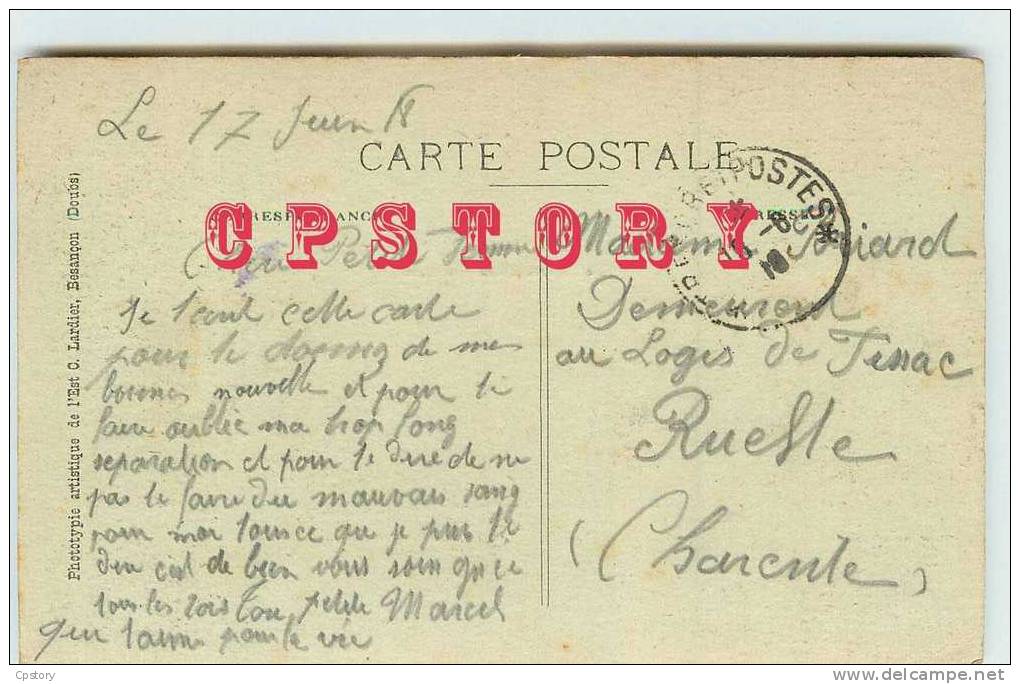 Le 17 Juin 18
CARTE POSTALE
CPSTORY
POSTES
Madame
Demeurent
au Logis de Tessac
Ruelle
(Charente)
Je tecrit cette carte
pour te donnez de mes
bonnes nouvelle et pour te
faire oublie ma trop long
separation et pour te dire de ne
pas te faire du mauvais sang
pour moi tousce que je puis te
dire cest de bien vous soingnie
tous les trois ton petite Marcel
qui taime pour la vie
Phototypie artistique de l'Est C. Lardier, Besançon (Doubs)
Cpstory
www.delcampe.net